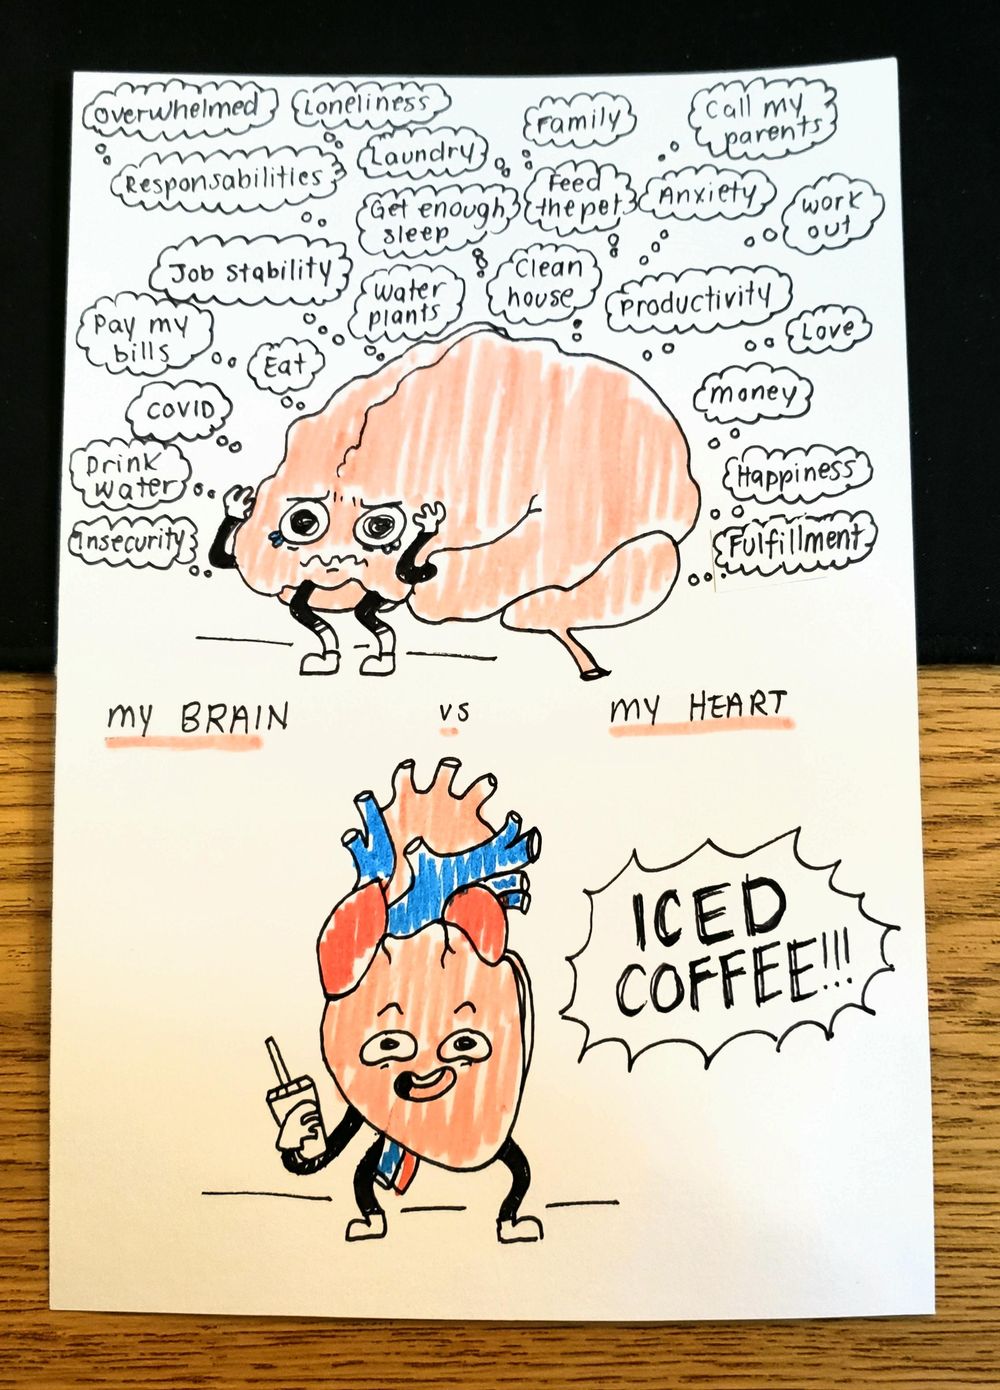 Overwhelmed
Loneliness
Family
Call my
parents
Laundry
Responsabilities
Get enough
sleep
Feed
the pet
Anxiety
Work
out
Job Stability
Water
plants
Clean
house
Productivity
Pay my
bills
Eat
Love
COVID
Money
Drink
water
Happiness
Insecurity
Fulfillment
my BRAIN
vs
my HEART
ICED
COFFEE!!!